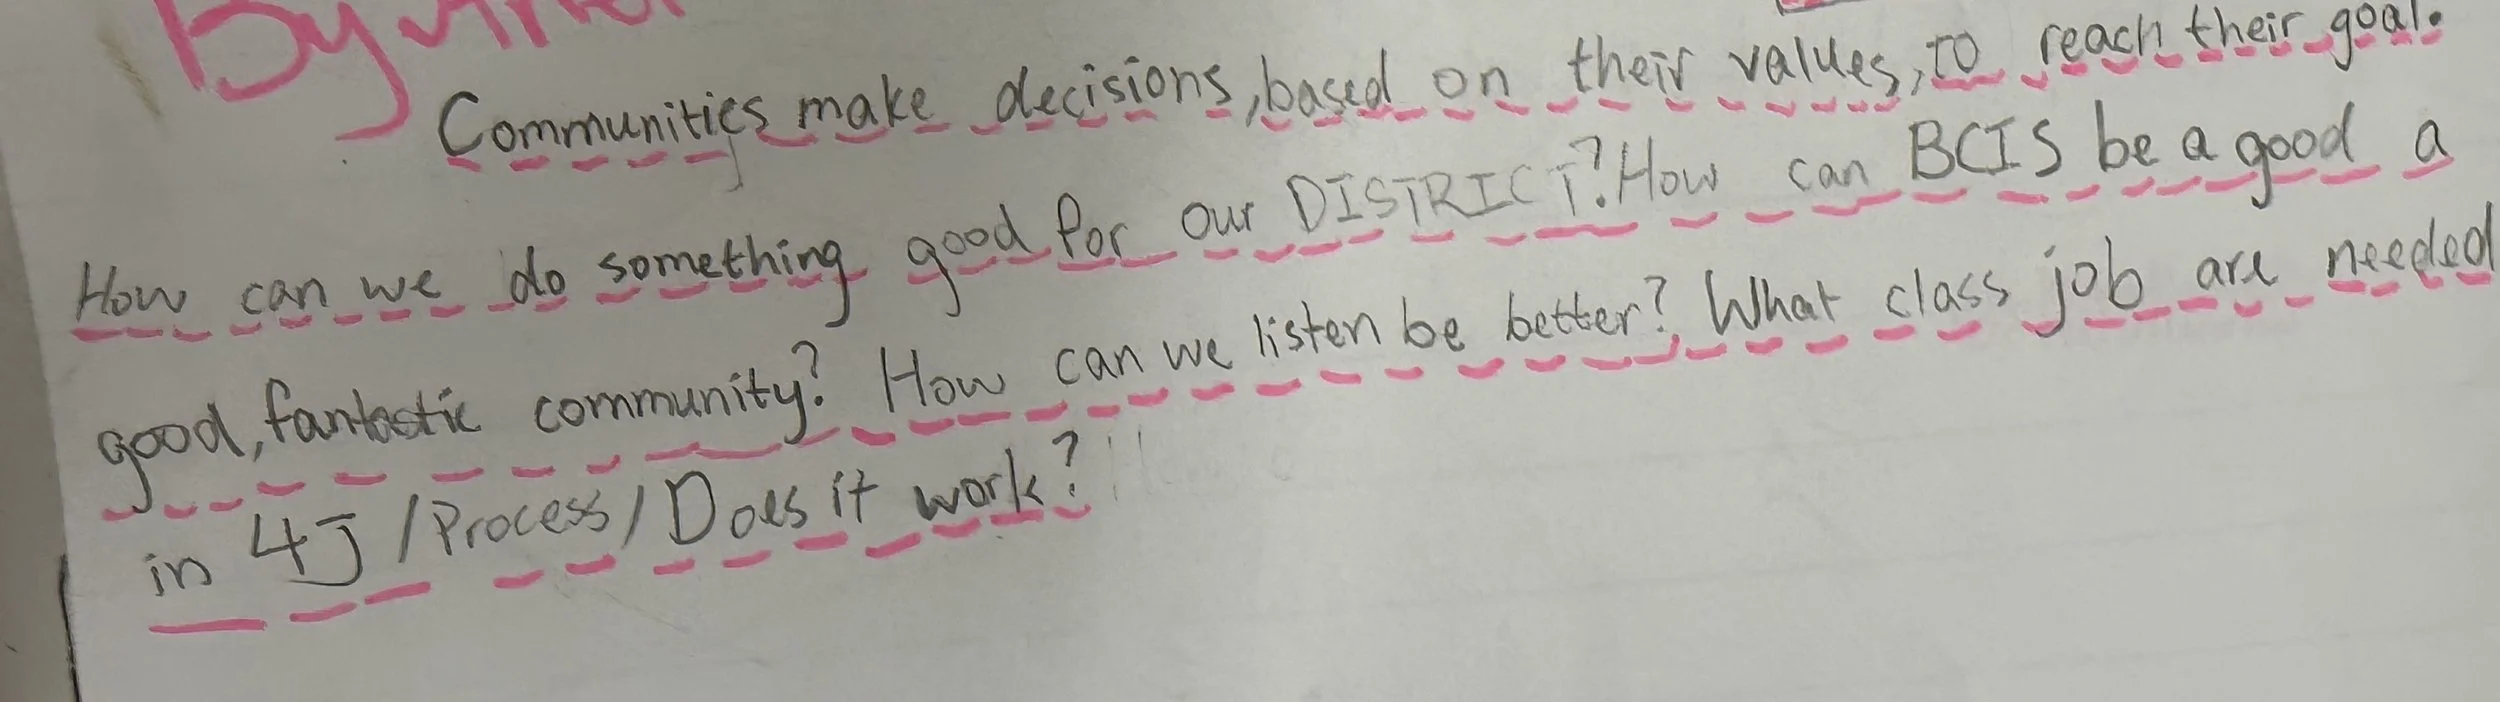 By
Communities make decisions, based on their values, to reach their goal.
How can we do something good for our DISTRICT? How can BCIS be a good a
good, fantastic community? How can we listen be better? What class job are needed
in 4J / Process / Does it work?